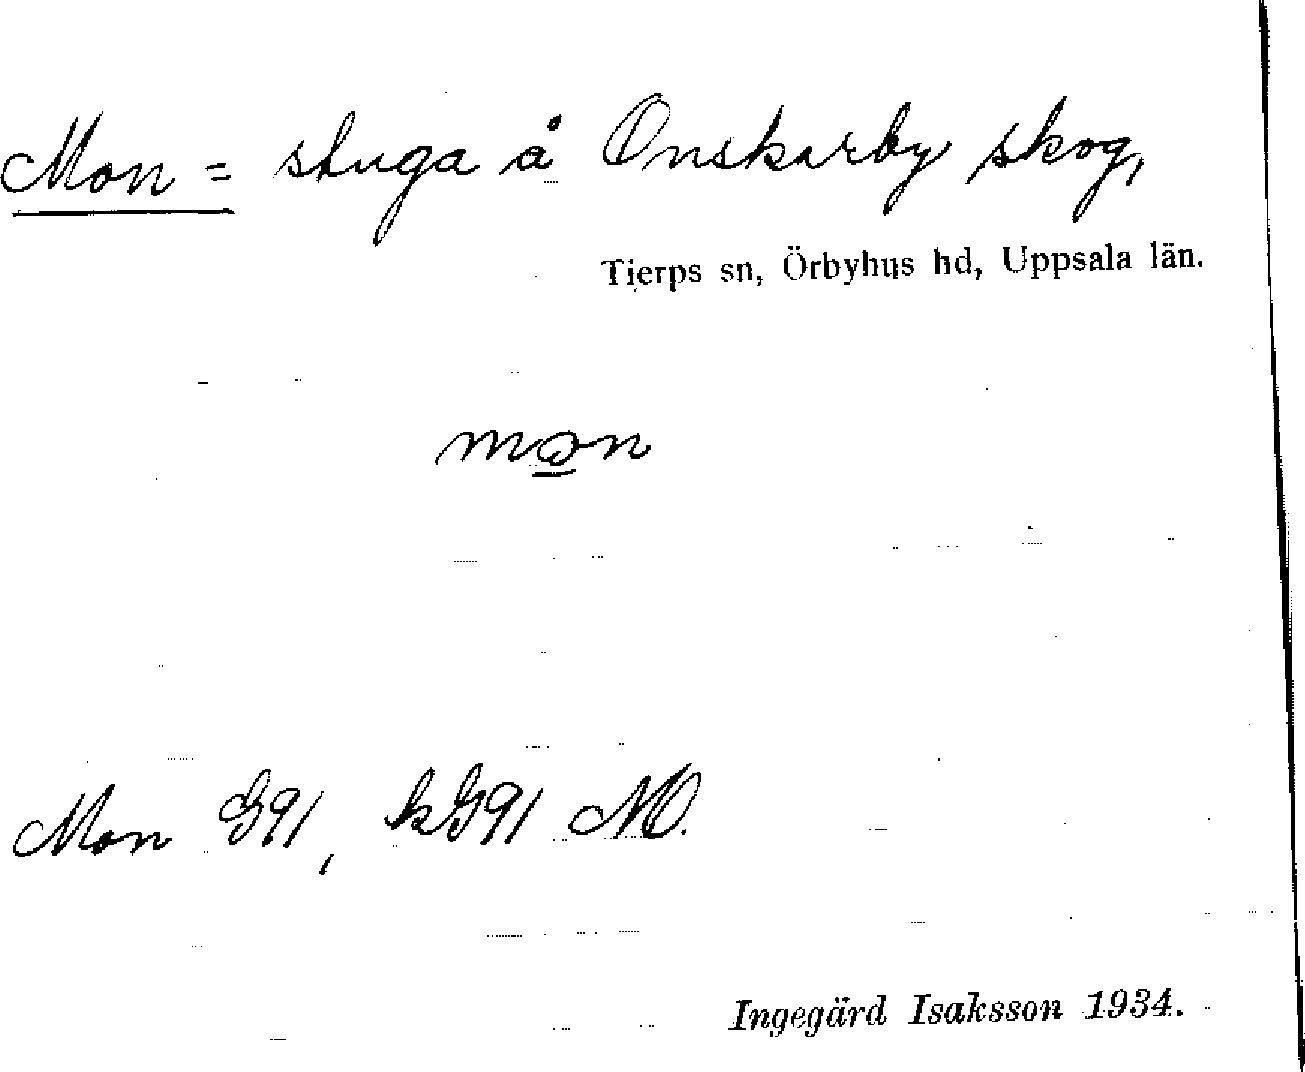 Mon = stuga å Onskarby skog,
Tierps sn, Örbyhus hd, Uppsala län.
mɷn
Mon G91, kG91 NO.
Ingegärd Isaksson 1934.